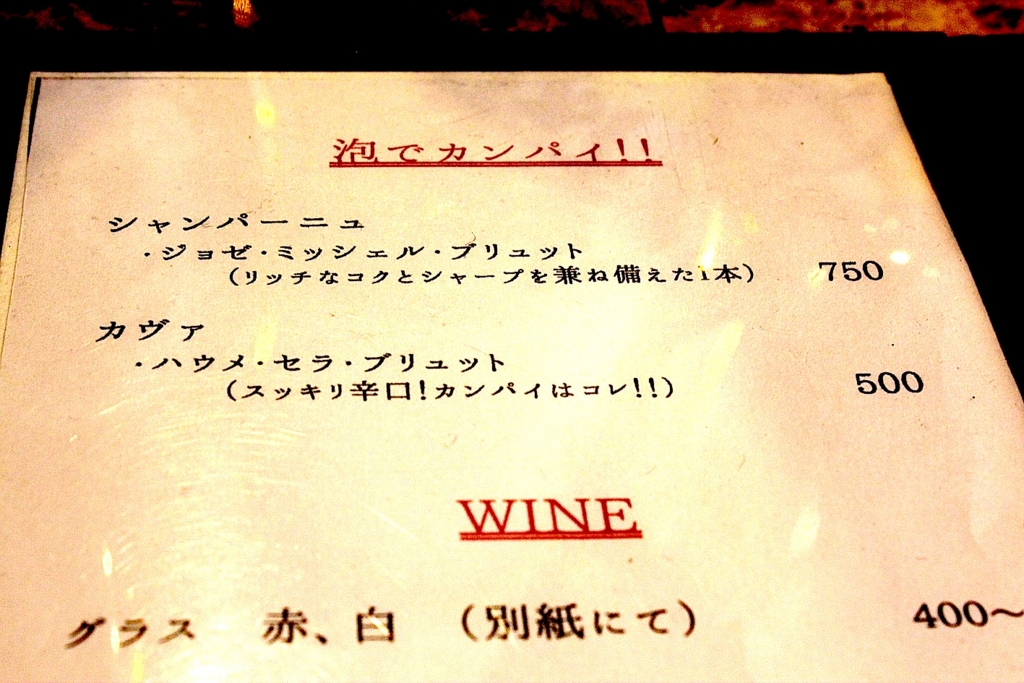 泡でカンパイ!!
シャンパーニュ
・ジョゼ・ミッシェル・ブリュット
(リッチなコクとシャープを兼ね備えた1本) 750
カヴァ
・ハウメ・セラ・ブリュット
(スッキリ辛口!カンパイはコレ!!) 500
WINE
グラス 赤、白 (別紙にて) 400〜